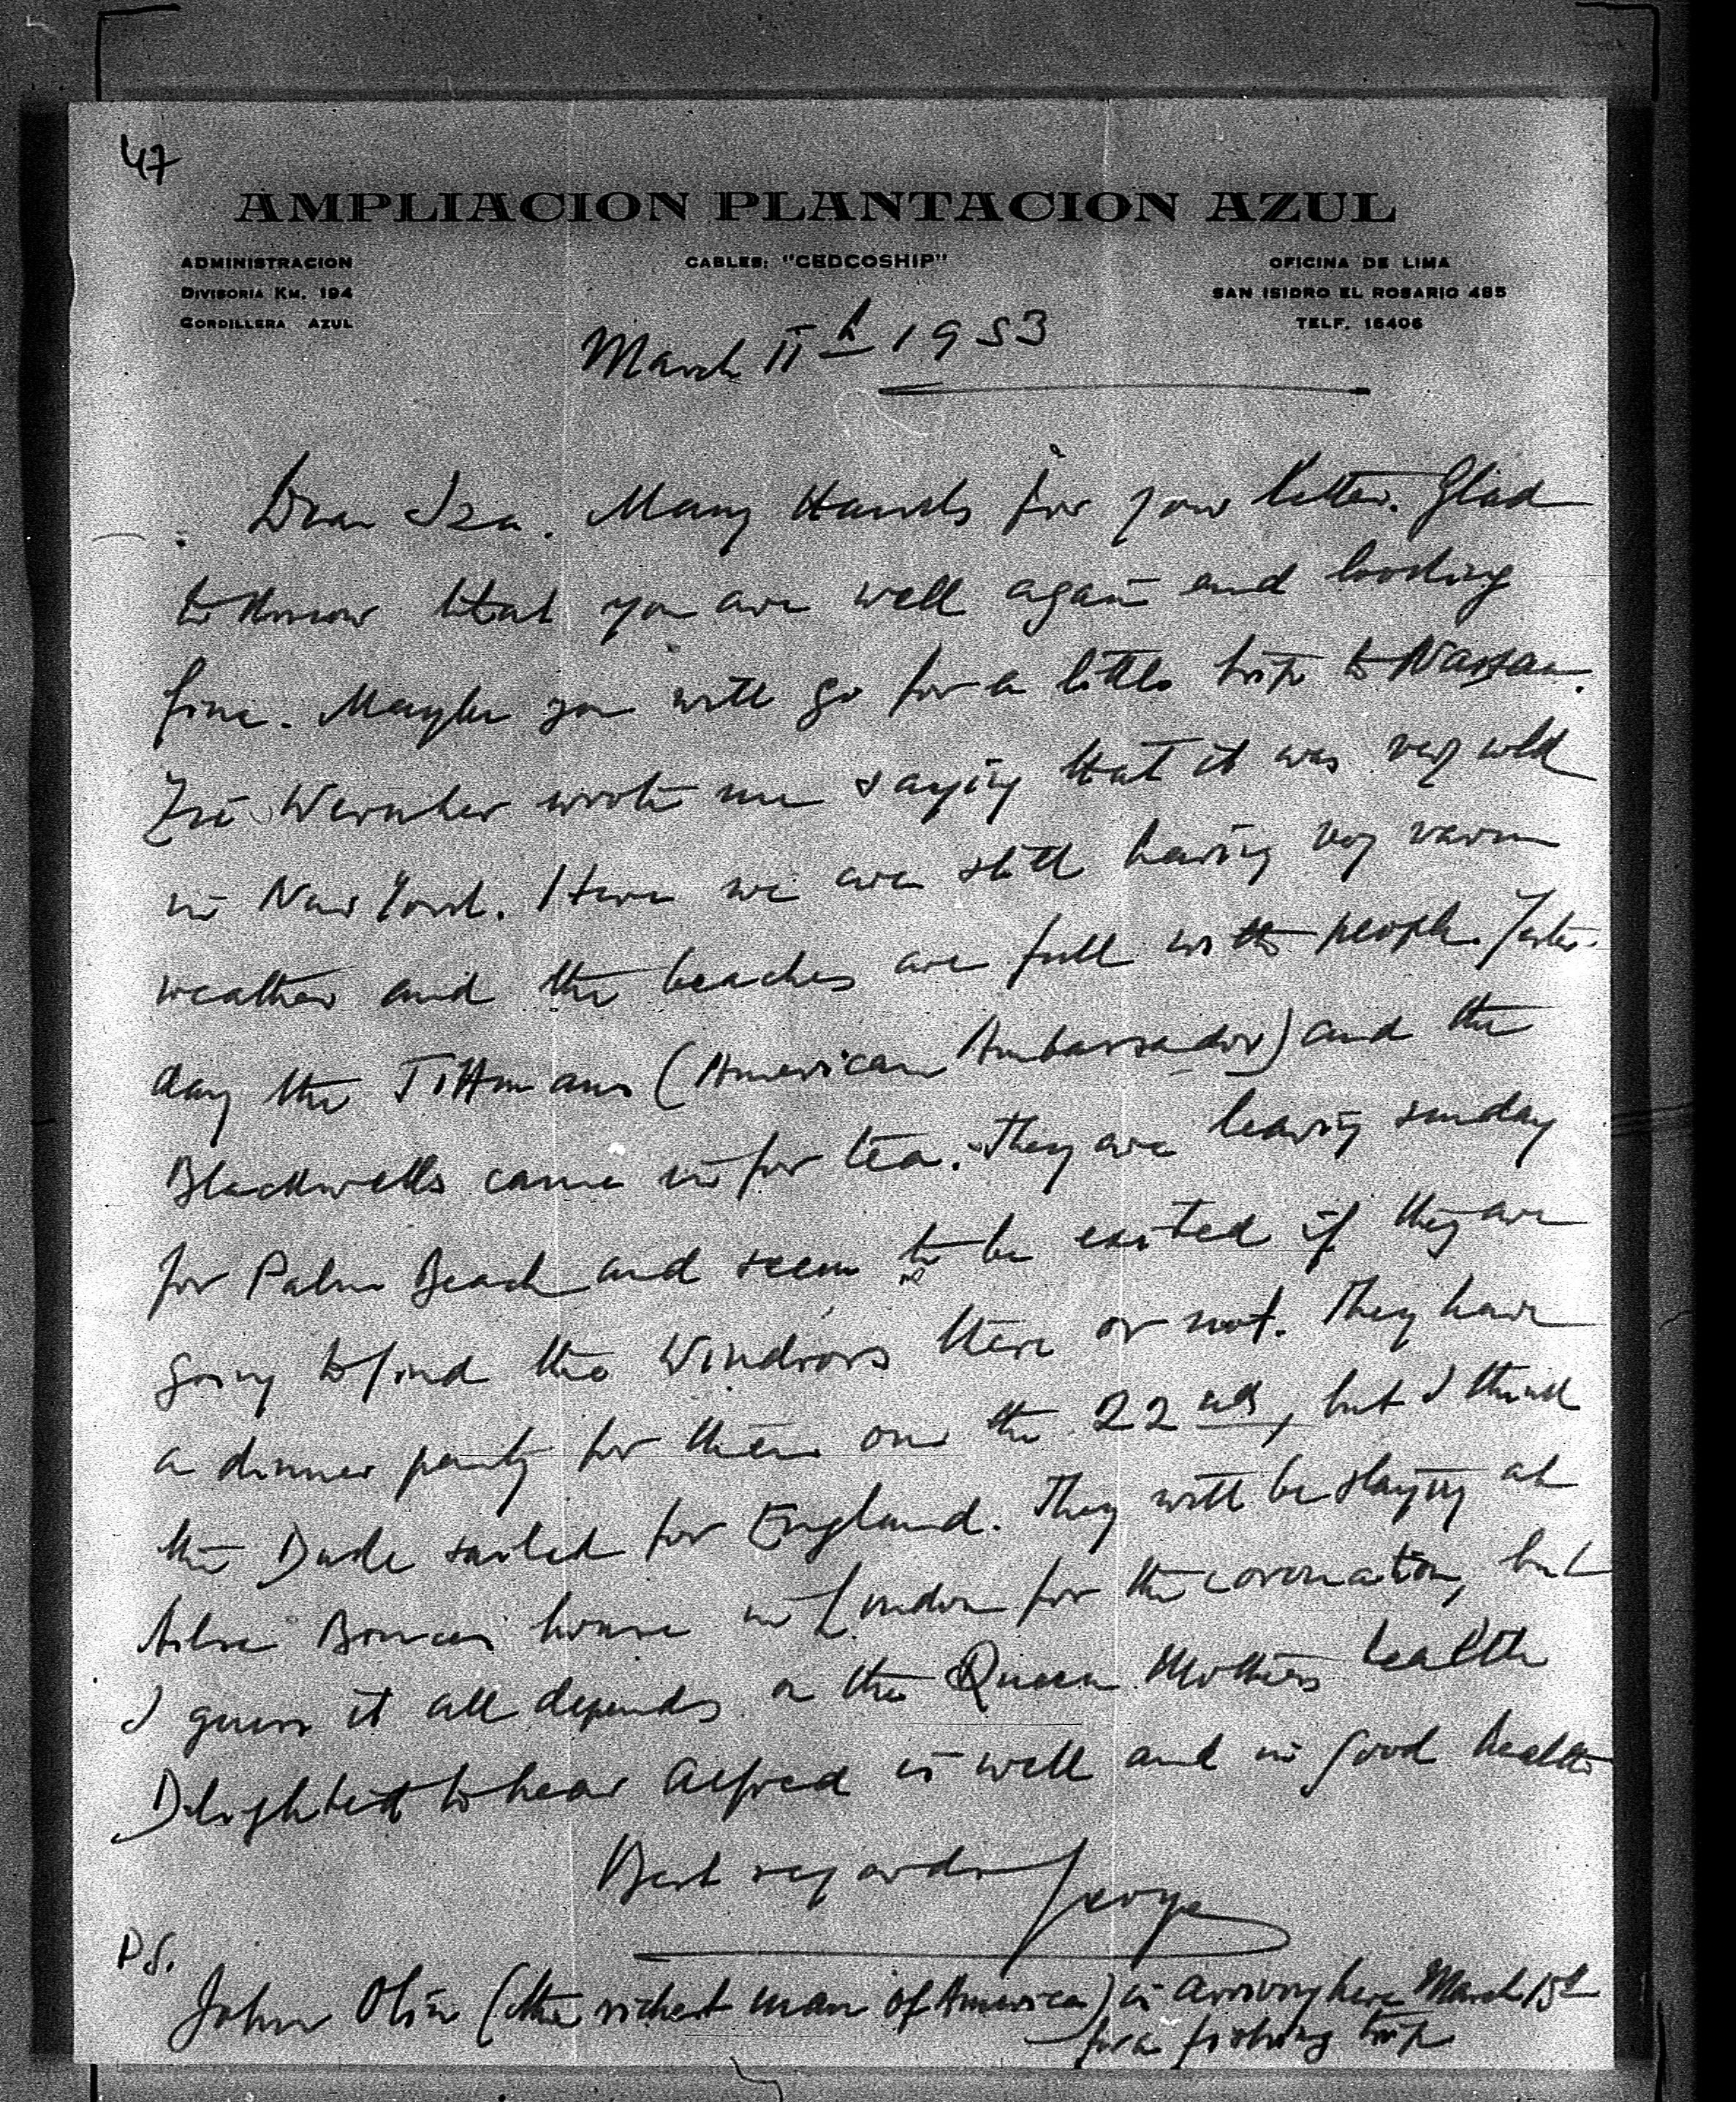 47
AMPLIACION PLANTACION AZUL
ADMINISTRACION
DIVISORIA KM. 194
CORDILLERA AZUL
CABLES: "CEDCOSHIP"
OFICINA DE LIMA
SAN ISIDRO EL ROSARIO 485
TELF. 16406
March 11th 1953
Dear Iza. Many thanks for your letter. Glad
to know that you are well again and looking
fine. Maybe you will go for a little trip to Nassau.
Wernher wrote me saying that it was very cold
in New York. Here we are still having very warm
weather and the beaches are full with people. Yester-
day the Tittmans (American Ambassador) and the
Blackwells came in for tea. They are leaving sunday
for Palm Beach and seem to be exited if they are
going to find the Windsors there or not. They have
a dinner party for them on the 22nd, but I think
the Duke sailed for England. They will be staying at
house in London for the coronation, but
I guess it all depends on the Queen Mothers health
Delighted to hear Alfred is well and in good health
Best regards George
P.S.
John Olin (the richest man of America) is arriving here March 15th
for a fishing trip